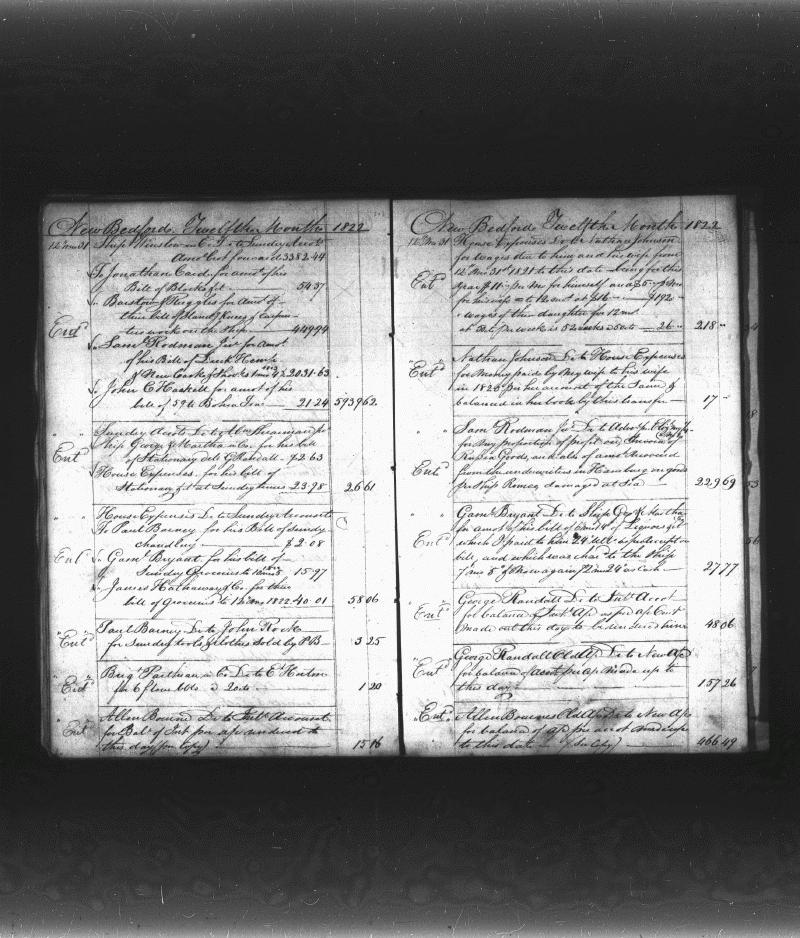 New Bedford. Twelfth Month 1822
12 Mo 31 Ship Winslow & Co Dr to Sundry Accots
Amot brot forward 3382.44
To Jonathan Card for amot of his
Bill of Blocks &c 54.37
Barstow & Ruggles for Amot of
their bill of
work on the Ship 449.94
Ent
Saml Rodman Jr for Amot
of his Bill of Duck Hemp
2031.63
John C Haskell for amot of his
bill of 59 lb Bohea Tea 21.24 5939 62
Sundry Accots Dr to Abm Shearman Jr
Ship George & Martha & Co for his bill
Ent of Stationary deld G Randall $2.63
House Expenses for his bill of
Stationary &c at Sundry times 23.98 26 61
House Expenses Dr to Sundry Accounts
To Paul Barney for his Bill of Sundry
chandlery $2.08
Ent Gaml Bryant for his bill of
Sundry Groceries to 15.97
James Hathaway & Co for their
bill of Groceries to 1822 40.01 58 06
Paul Barney Dr to John Rock
Ent for Sundry tools & clothes sold by PB 3 25
Brig Parthian & Co Dr to Ed Horton
Ent for 6 flour bbls @ 20 cts 1 20
Allen Bourne Dr to Intt Account
Ent for Balce of Int per a/c rendered to
this day (see Copy) 15 16
New Bedford Twelfth Month 1822
12 Mo 31 House Expenses Dr to Nathan Johnson
for wages due to him and his wife from
12 Mo 31st 1821 to this date being for this
Ent year $11 pr Mo for himself and $5 pr Mo
for his wife = to 12 mos at $16 $192
wages of their daughter for 12 mos
at pr week is 52 weeks @ 50 cts 26 " 218 "
Nathan Johnson Dr to House Expenses
Ent for money paid by my wife to his wife
in 1822 per her account of the same &
balanced in her book by this transfer 17 "
Saml Rodman Jr Dr to
for my proportion of profit on Invoice of
Russia Goods, and als of amot recovered
Ent from the underwriters in Hamburg on goods
pr Ship Romeo damaged at Sea 229 69
Gaml Bryant Dr to Ship Geo & Martha
for amot of his bill of Liquors &c
Ent which I paid to him as pr receipt on
bill, and which was chad to the Ship
7 mo 8th & now again 12 mo 26 as Cash 27 77
George Randall Dr to Intt Accot
Ent for balance of Intt A/c as pr a/c Curt
made out this day to be rendered him 48 06
George Randall Old A/c Dr to New A/c
Ent for balance of Accot per a/c made up to
this day 157 26
Ent Allen Bournes Old A/c Dr to New A/c
for balance of a/c per accot made up
to this date (See Copy) 466 49